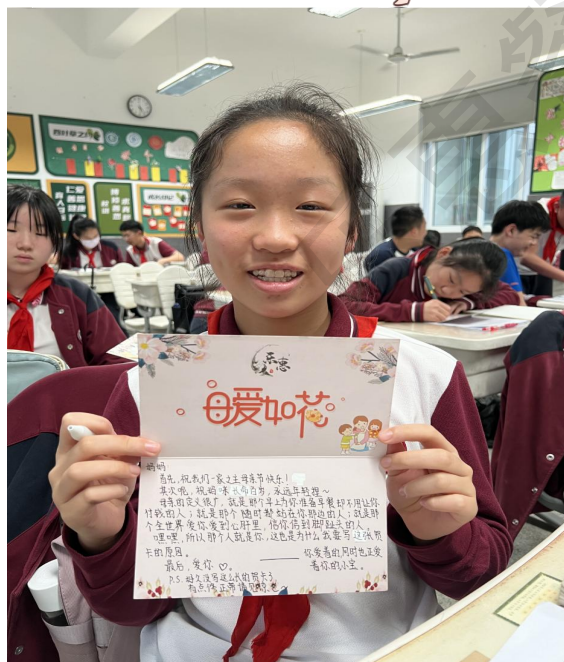 乐惠
母爱如花
妈妈
首先,祝我们一家之主母亲节快乐!
其次呢,祝妈咪长命百岁,永远年轻捏~
母亲的定义很广,就是那个早上为你准备早餐却不用让你
付钱的人;就是那个随时都站在你那边的人;就是那
个全世界爱你爱到心肝里,信你信到脚趾头的人。
嘿嘿,所以那个人就是你,这也是为什么我要写这张贺
卡的原因。
最后,爱你♡。
你爱着的同时也正爱
着你的小宝。
P.S. 好久没写这么长的贺卡了
有点儒正常情况哈~